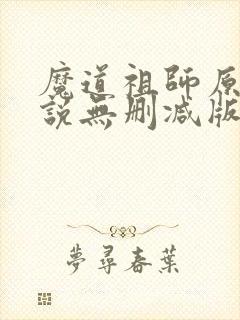 魔道祖師原
說無刪减版
夢尋春葉